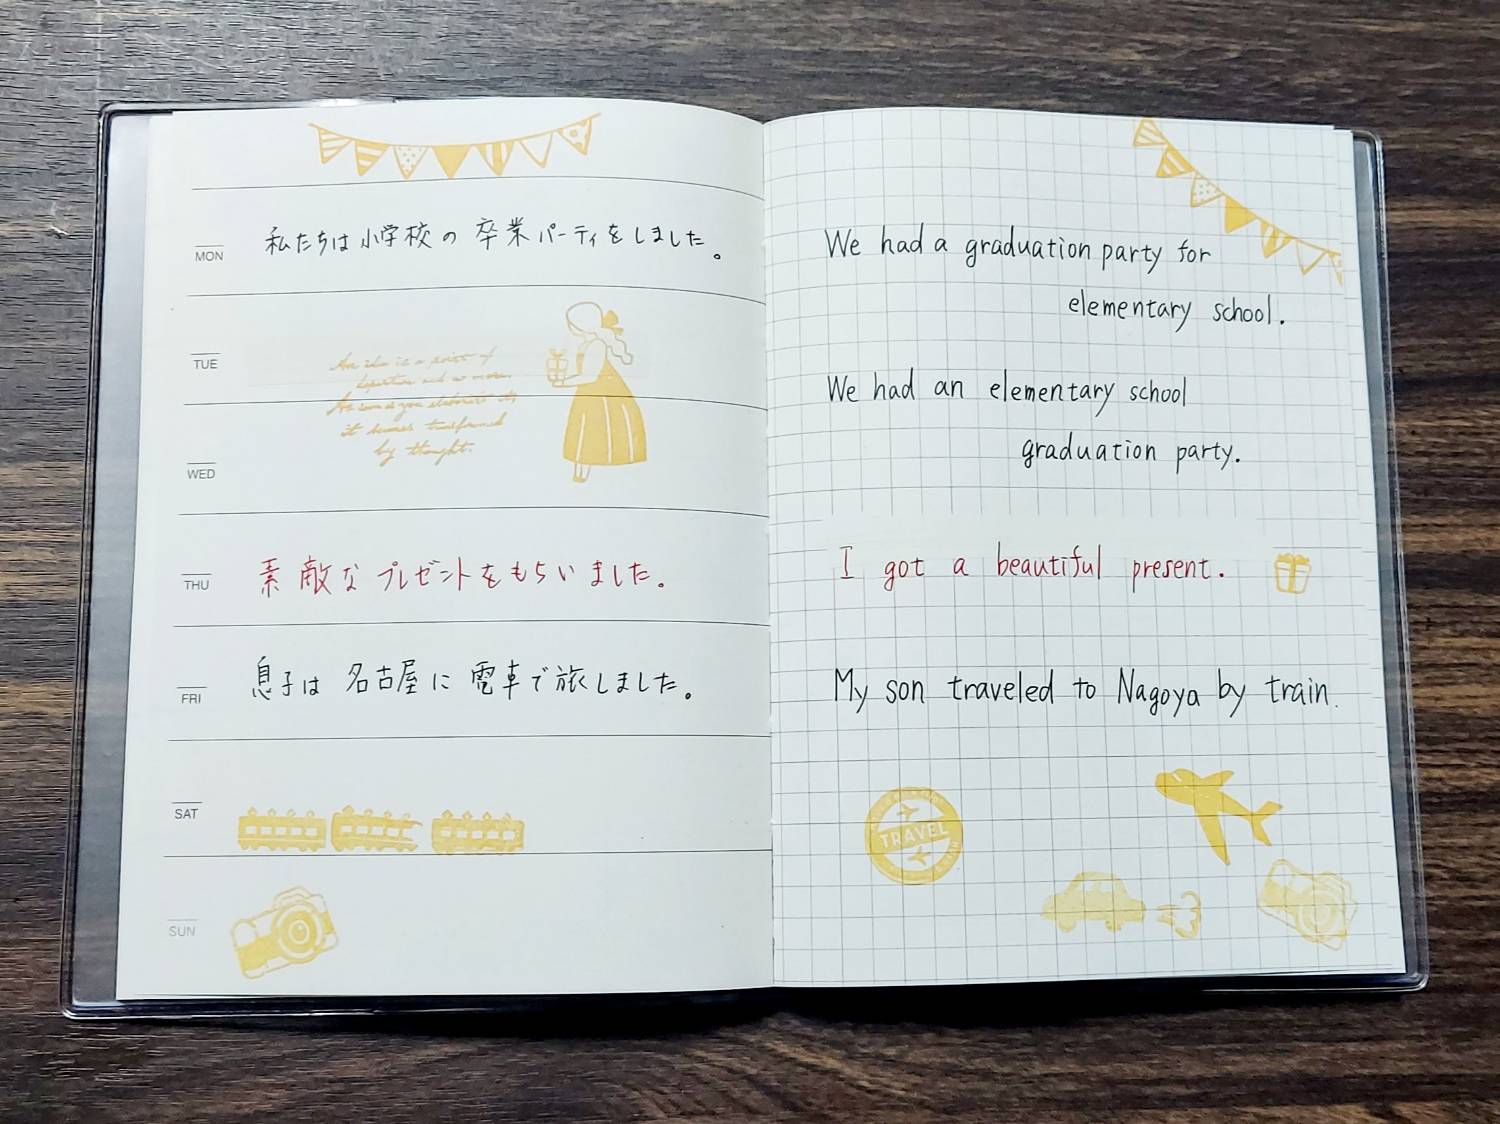 MON
私たちは小学校の卒業パーティをしました。
TUE
An idea is a point of
departure and no more.
As soon as you elaborate it,
it becomes transformed
by thought.
WED
THU
素敵なプレゼントをもらいました。
FRI
息子は名古屋に電車で旅しました。
SAT
SUN
We had a graduation party for
elementary school.
We had an elementary school
graduation party.
I got a beautiful present.
My son traveled to Nagoya by train.
TRAVEL